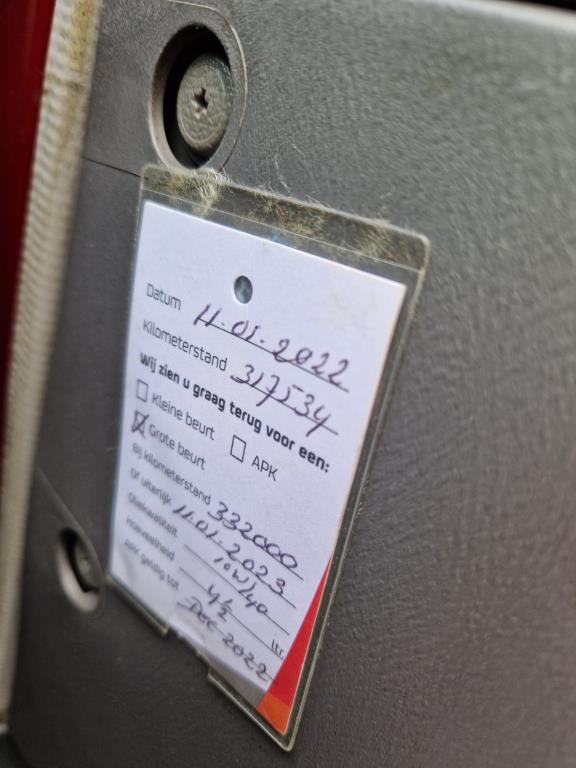 Datum 11-01-2022
Kilometerstand 317534
Wij zien u graag terug voor een:
Kleine beurt
Grote beurt APK
Bij kilometerstand 332000
Of uiterlijk 11-01-2023
Oliekwaliteit 10W/40
Hoeveelheid 4½ ltr.
APK geldig tot DEC 2022